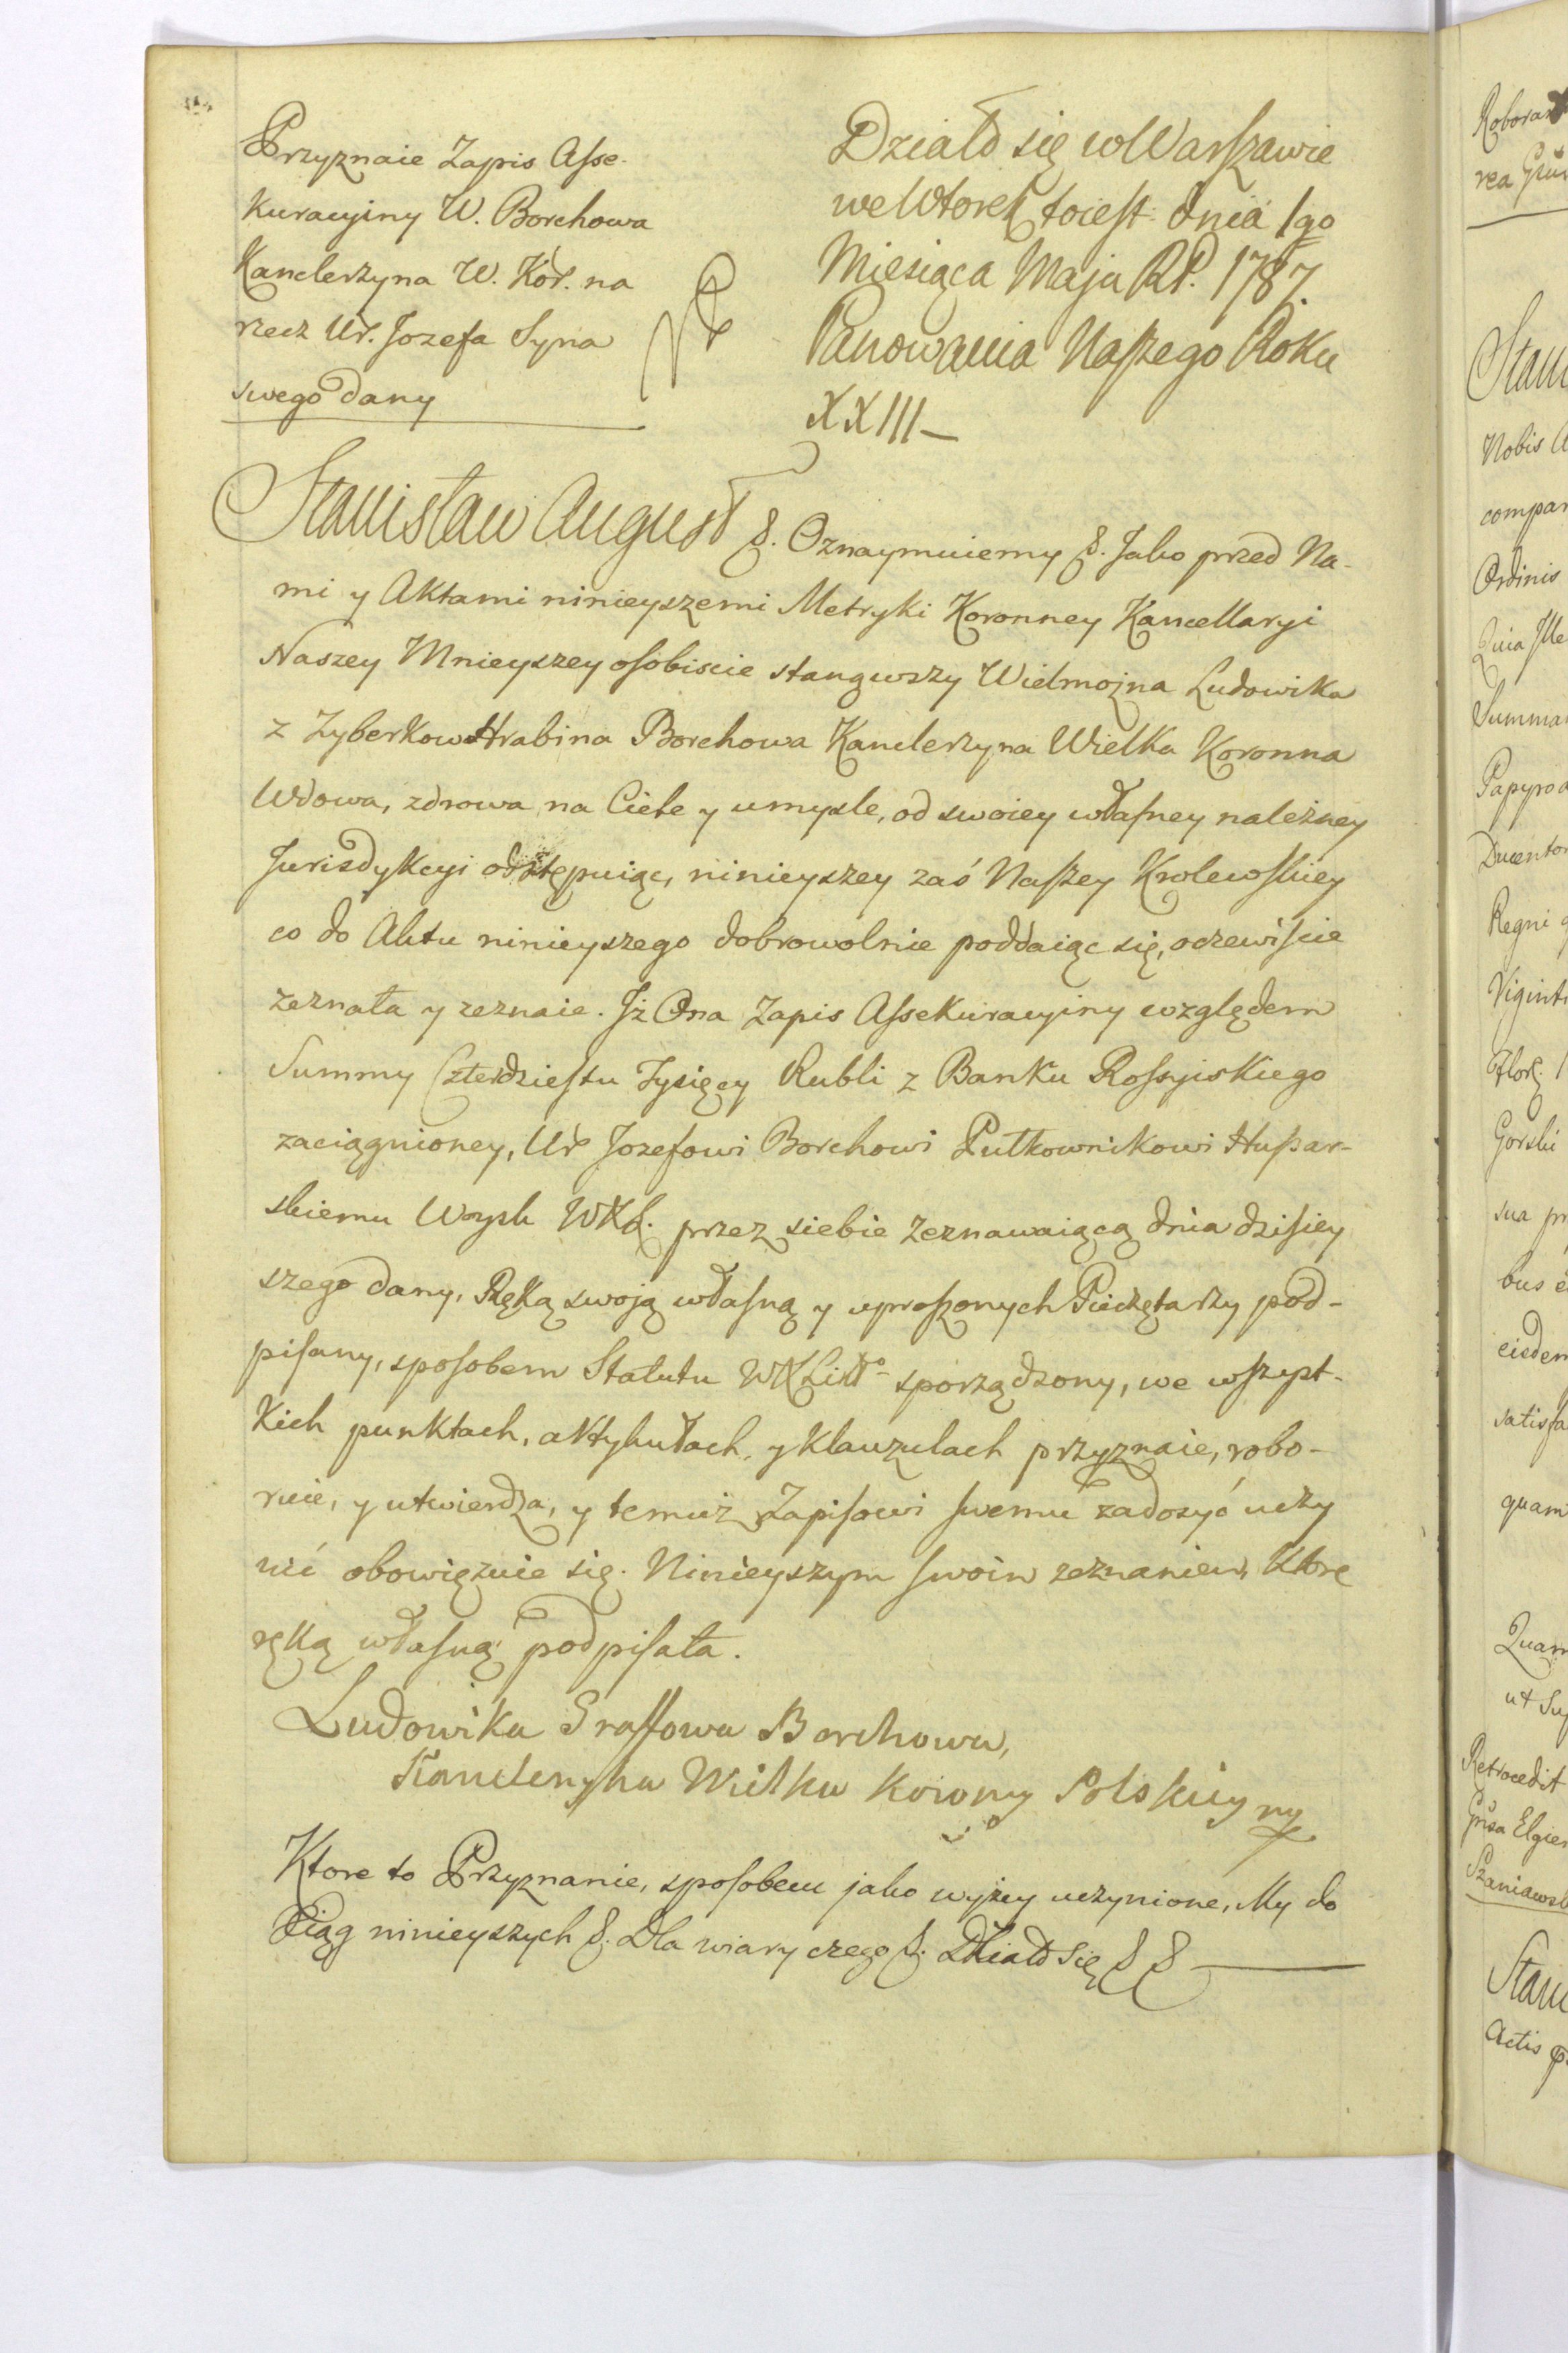 Przyznaie Zapis Asse-
kuracyiny W. Borchowa
Kanclerzyna W. Kor. na
rzecz Ur. Jozefa Syna
swego dany
Działo się w Warszawie
we Wtorek toiest dnia 1go
Miesiąca Maja RP. 1787.
Panowania Naszego Roku
XXIII—
Stanisław August &. Oznaymuiemy &. Jako przed Na-
mi y Aktami ninieyszemi Metryki Koronney Kancellaryi
Naszey Mnieyszey osobiscie stanąwszy Wielmożna Ludowika
z Zyberkow Hrabina Borchowa Kanclerzyna Wielka Koronna
Wdowa, zdrowa na Ciele y umysle, od swoiey własney należney
Jurisdykcyi odstępuiąc, ninieyszey zaś Naszey Krolewskiey
co do Aktu ninieyszego dobrowolnie poddaiąc się, oczewiście
zeznała y zeznaie. Jż Ona Zapis Assekuracyiny względem
Summy Czterdziestu Tysięcy Rubli z Banku Rossyiskiego
zaciągnioney, Ur Jozefowi Borchowi Pułkownikowi Hussar-
skiemu Woysk WXL. przez siebie Zeznawaiącą dnia dzisiey
szego dany, Ręką swoją własną y uproszonych Pieczętarzy pod-
pisany, sposobem Statutu WXLitto sporządzony, we wszyst-
kich punktach, aktykułach, y klauzulach przyznaie, robo-
ruie, y utwierdza, y temuż Zapisowi swemu zadosyć uczy
nić obowięzuie się. Ninieyszym swoim zeznaniem, Które
ręką własną podpisała.
Ludowika Graffowa Borchowa,
Kanclerzyna Wielka Korony Polskiey
Ktore to Przyznanie, sposobem jako wyżey uczynione, My do
Xiąg ninieyszych &. Dla wiary czego &. Działo Się & &
Roborat
Stani
Nobis
compar
Ordinis
Quia Ille
Summa
Papyro
Ducento
Regni
Viginti
Gorski
sua pr
bus e
eiedem
satisfa
quam
Quam
ut Su
Retrocedit
Szaniawsk
Stani
Actis